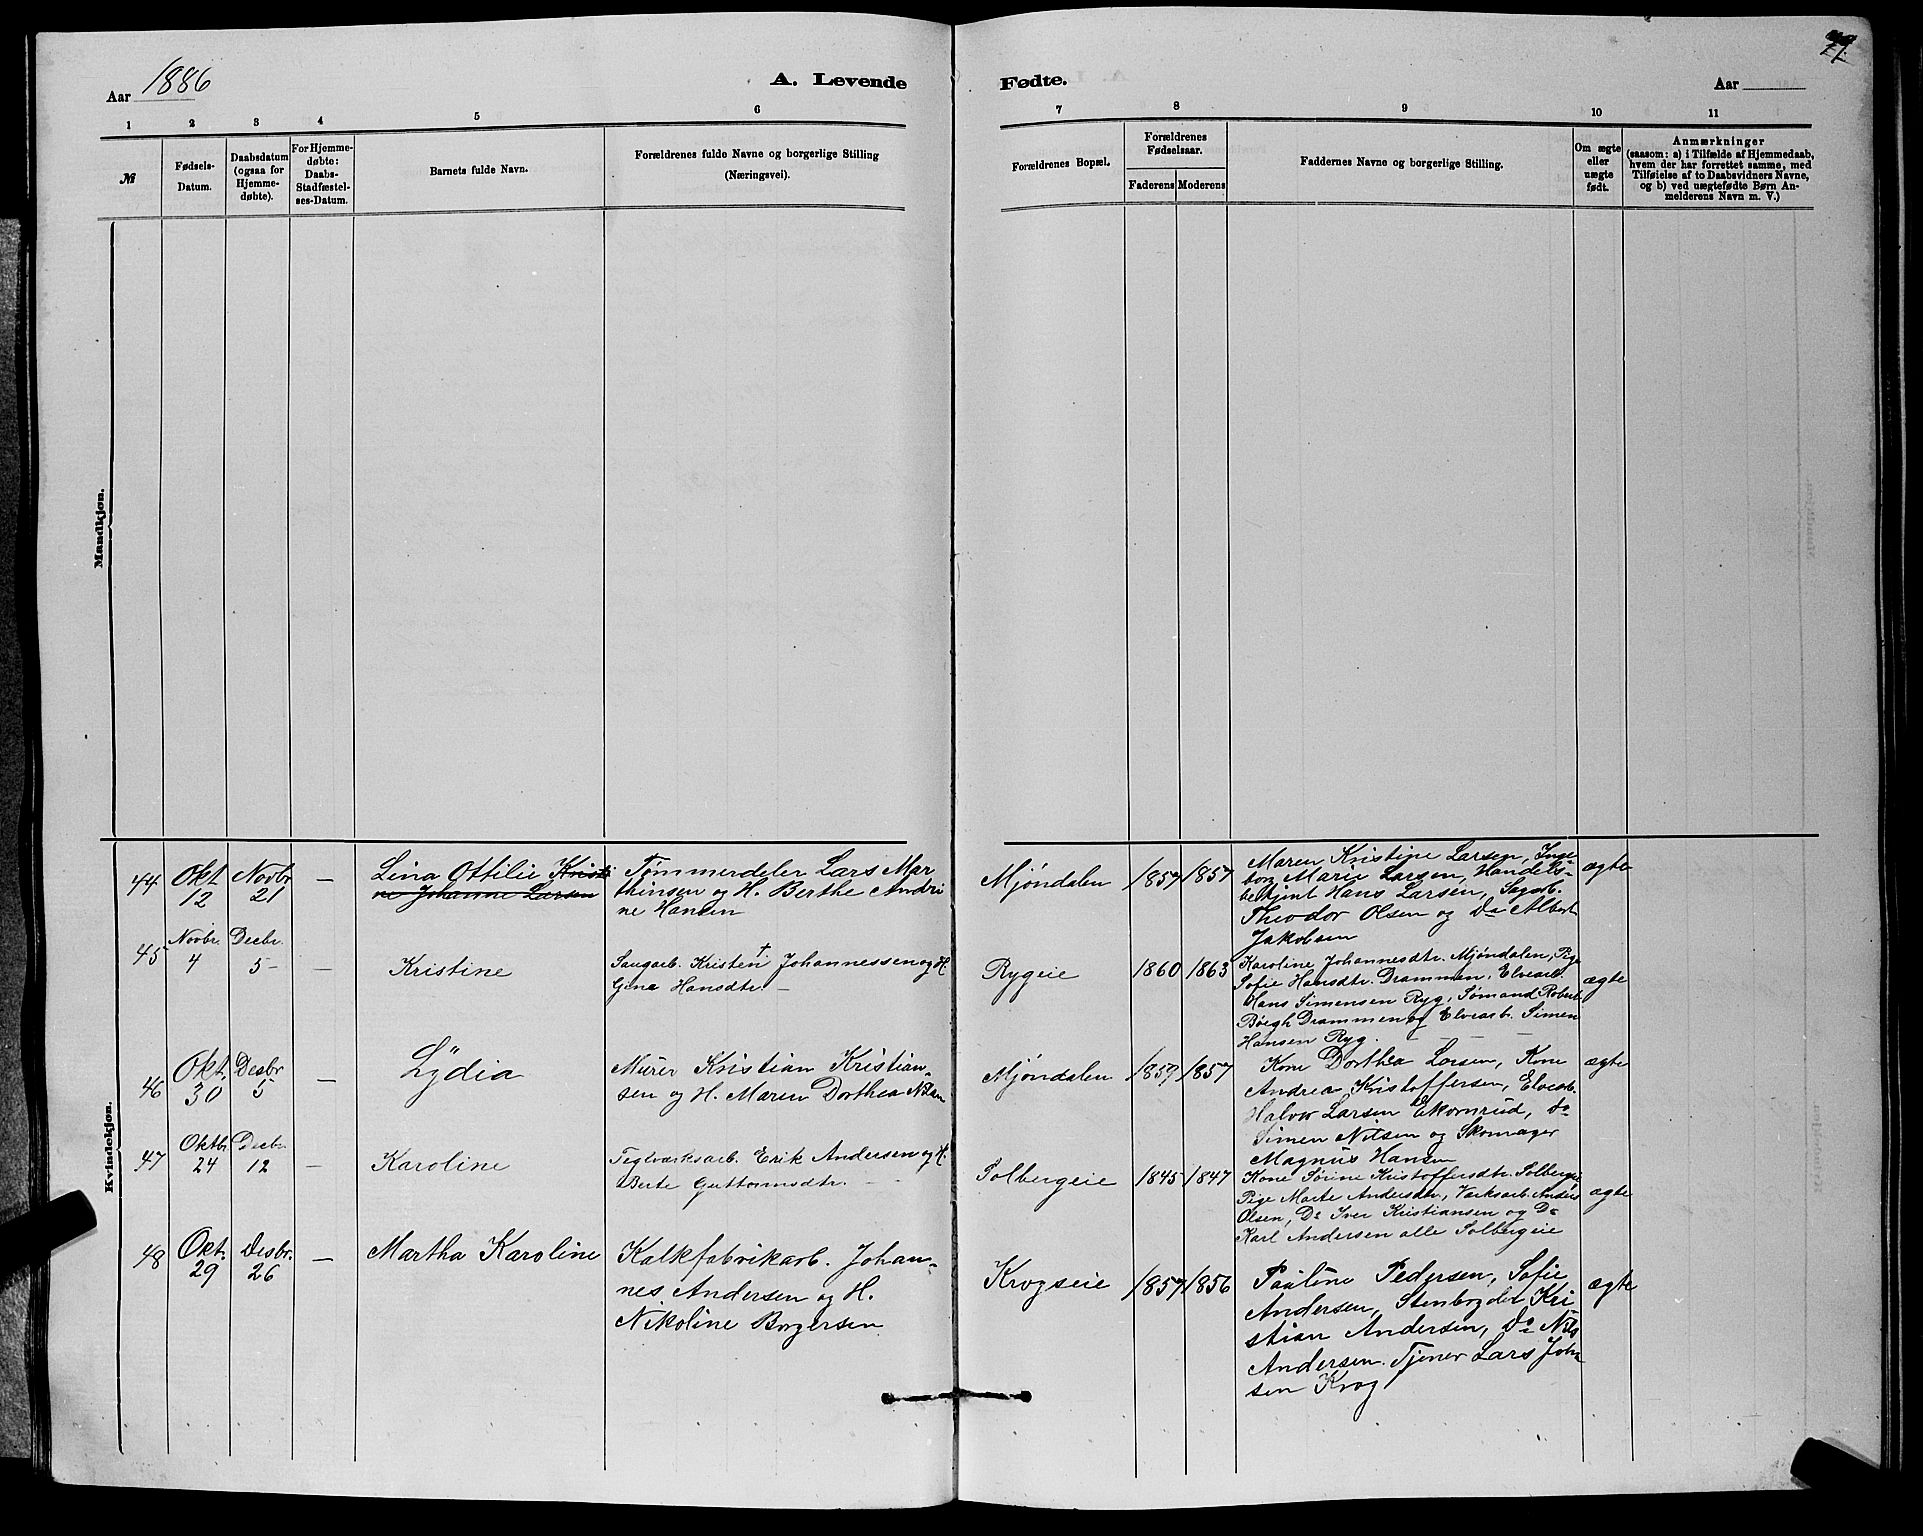 Aar 1886
A. Levende
Fødte.
Aar
1 2 3 4 5 6 7 8 9 10 11
№
Fødsels-
Datum.
Daabsdatum
(ogsaa for
Hjemme-
døbte).
For Hjemme-
døbte:
Daabs-
Stadfæstel-
ses-Datum.
Barnets fulde Navn.
Forældrenes fulde Navne og borgerlige Stilling
(Næringsvei).
Forældrenes Bopæl.
Forældrenes
Fødselsaar.
Faderens Moderens
Faddernes Navne og borgerlige Stilling.
Om ægte
eller
uægte
født.
Anmærkninger
(saasom: a) i Tilfælde af Hjemmedaab,
hvem der har forrettet samme, med
Tilføielse af to Daabsvidners Navne,
og b) ved uægtefødte Børn An-
melderens Navn m. V.)
Mandkjøn.
Kvindekjøn.
44
Okt
12
Novbr
21
—
Lina Ottilie Kristi
ne Johanne Larsen
Tømmerdeler Lars Mar
thinsen og H. Berthe Andri
ne Hansen
Mjøndalen
1857
1857
Maren Kristine Larsen, Inge-
borg Marie Larsen, Handels-
betjent Hans Larsen, Sagarb.
Theodor Olsen og Do Albert
Jakobsen
ægte
45
Novbr.
4
Decbr.
5
—
Kristine
Saugarb. Kristen Johannessen og H.
Gina Hansdtr. —
Rygeie
1860
1863
Karoline Johannesdtr. Mjøndalen, Pige
Sofie Hansdtr. Drammen, Elvearb.
Hans Simensen Ryg, Sømand Robert
Bøegh Drammen og Elvearb. Simen
Hansen Ryg.
ægte
46
Okt.
30
Desbr
5
—
Lydia
Murer Kristian Kristian-
sen og H. Maren Dorthea Nilsen
Mjøndalen
1859
1857
Kone Dorthea Larsen, Kone
Andrea Kristoffersen, Elvearb.
Halvor Larsen Ekornrud, do
Simen Nilsen og Skomager
Magnus Hansen
ægte
47
Oktbr
24
Decbr.
12
—
Karoline
Teglværksarb. Erik Andersen og H.
Berte Guttormsdtr. —
Solbergeie
1845
1847
Kone Sørine Kristoffersdtr. Solbergeie
Pige Marte Andersdtr, Værksarb. Anders
Olsen, Do Iver Kristiansen og Do
Karl Andersen alle Solbergeie
ægte
48
Okt.
29
Desbr.
26
—
Martha Karoline
Kalkfabrikarb. Johan-
nes Andersen og H.
Nikoline Borgersen
Krogseie
1857
1856
Pauline Pedersen, Sofie
Andersen, Stenbryder Kri-
stian Andersen, Do Nils
Andersen. Tjener Lars Johan
sen Krog
ægte